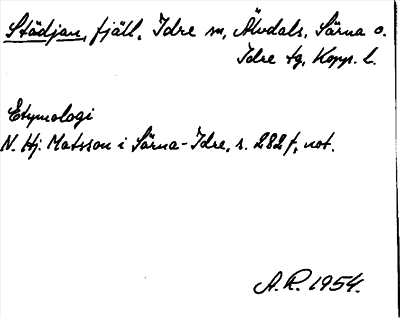 Städjan, fjäll, Idre sn, Älvdals, Särna o.
Idre tg, Kopp. l.
Etymologi
N. Hj. Matsson i Särna-Idre, s. 282 f, not.
A.R. 1954.